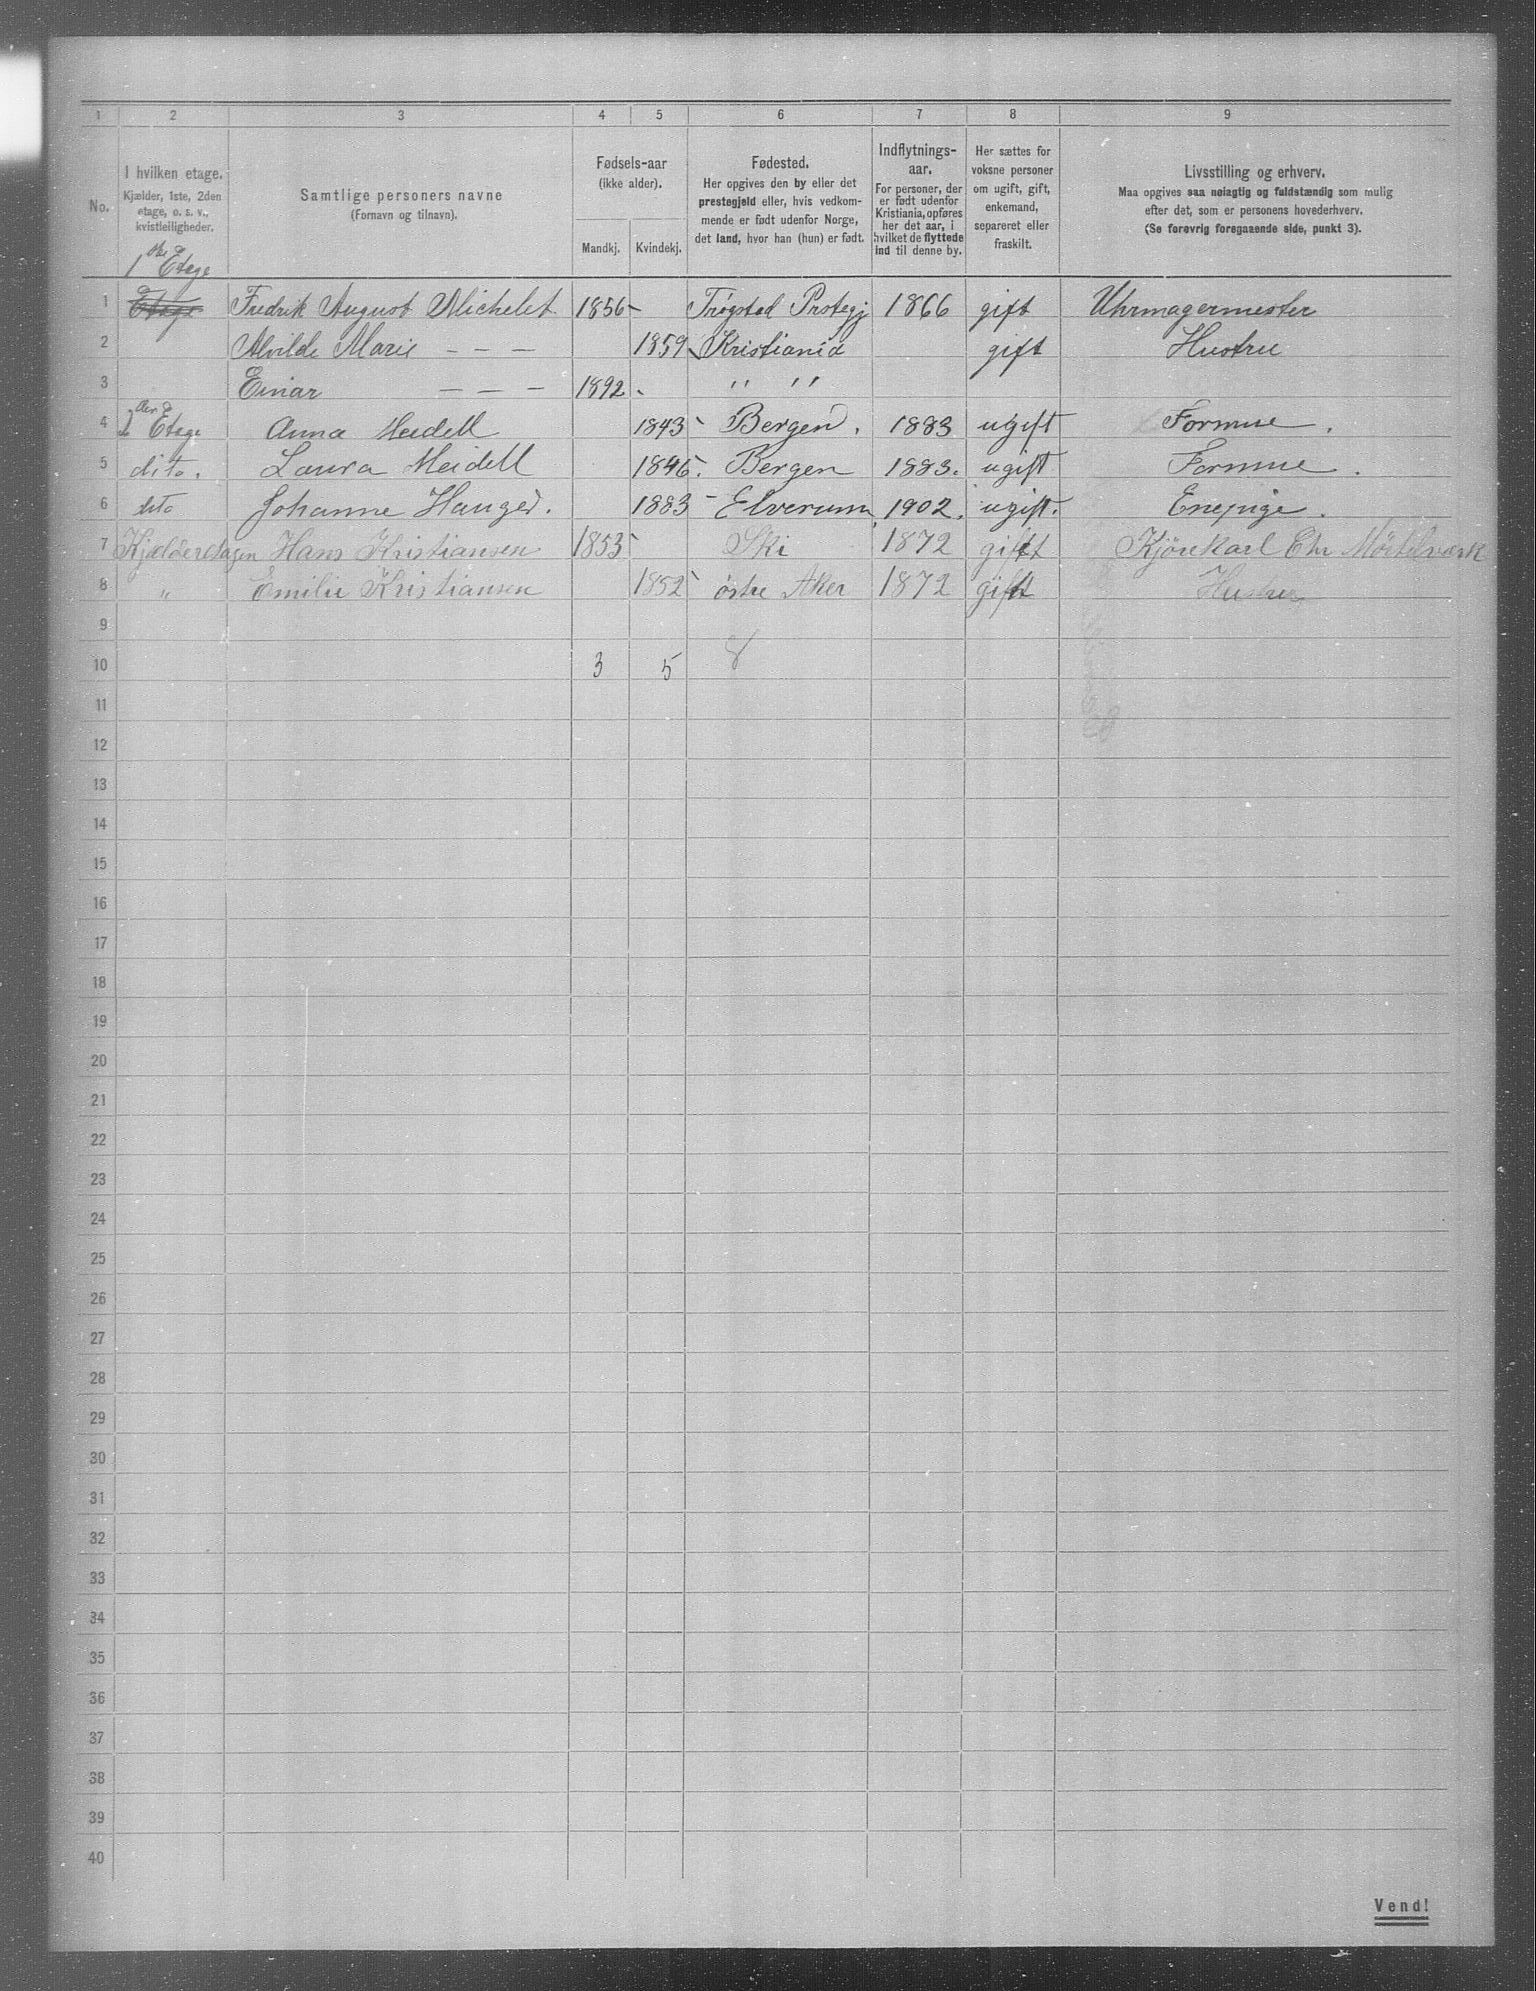 1 2 3 4 5 6 7 8 9
No.
I hvilken etage.
Kjælder, 1ste, 2den
etage, o. s. v.,
kvistleiligheder.
Samtlige personers navne
(Fornavn og tilnavn).
Fødsels-aar
(ikke alder).
Mandkj. Kvindekj.
Fødested.
Her opgives den by eller det
prestegjeld eller, hvis vedkom-
mende er født udenfor Norge,
det land, hvor han (hun) er født.
Indflytnings-
aar.
For personer, der
er født udenfor
Kristiania, opføres
her det aar, i
hvilket de flyttede
ind til denne by.
Her sættes for
voksne personer
om ugift, gift,
enkemand,
separeret eller
fraskilt.
Livsstilling og erhverv.
Maa opgives saa nøiagtig og fuldstændig som mulig
efter det, som er personens hovederhverv.
(Se forøvrig foregaaende side, punkt 3).
1ste Etage
1 Etage Fredrik August Michelet 1856 - Trøgstad Prstegj 1866 gift Uhrmagermester
2 Alvilde Marie - - - 1859 Kristiania gift Hustru
3 Einar - - - 1892 - " "
4 2den Etage Anna Meidell 1843 - Bergen. 1883 ugift Formue.
5 dito. Laura Meidell 1846. Bergen 1883. ugift Formue.
6 dito Johanne Hanger. 1883 - Elverum 1902. ugift. Enepige.
7 Kjælderetagen Hans Kristiansen 1853 - Ski 1872 gift Kjørekarl Chr Mørtelværk
8 " Emilie Kristiansen 1852 - østre Aker 1872 gift Hustru
9
10 3 5 8
11
12
13
14
15
16
17
18
19
20
21
22
23
24
25
26
27
28
29
30
31
32
33
34
35
36
37
38
39
40
Vend!